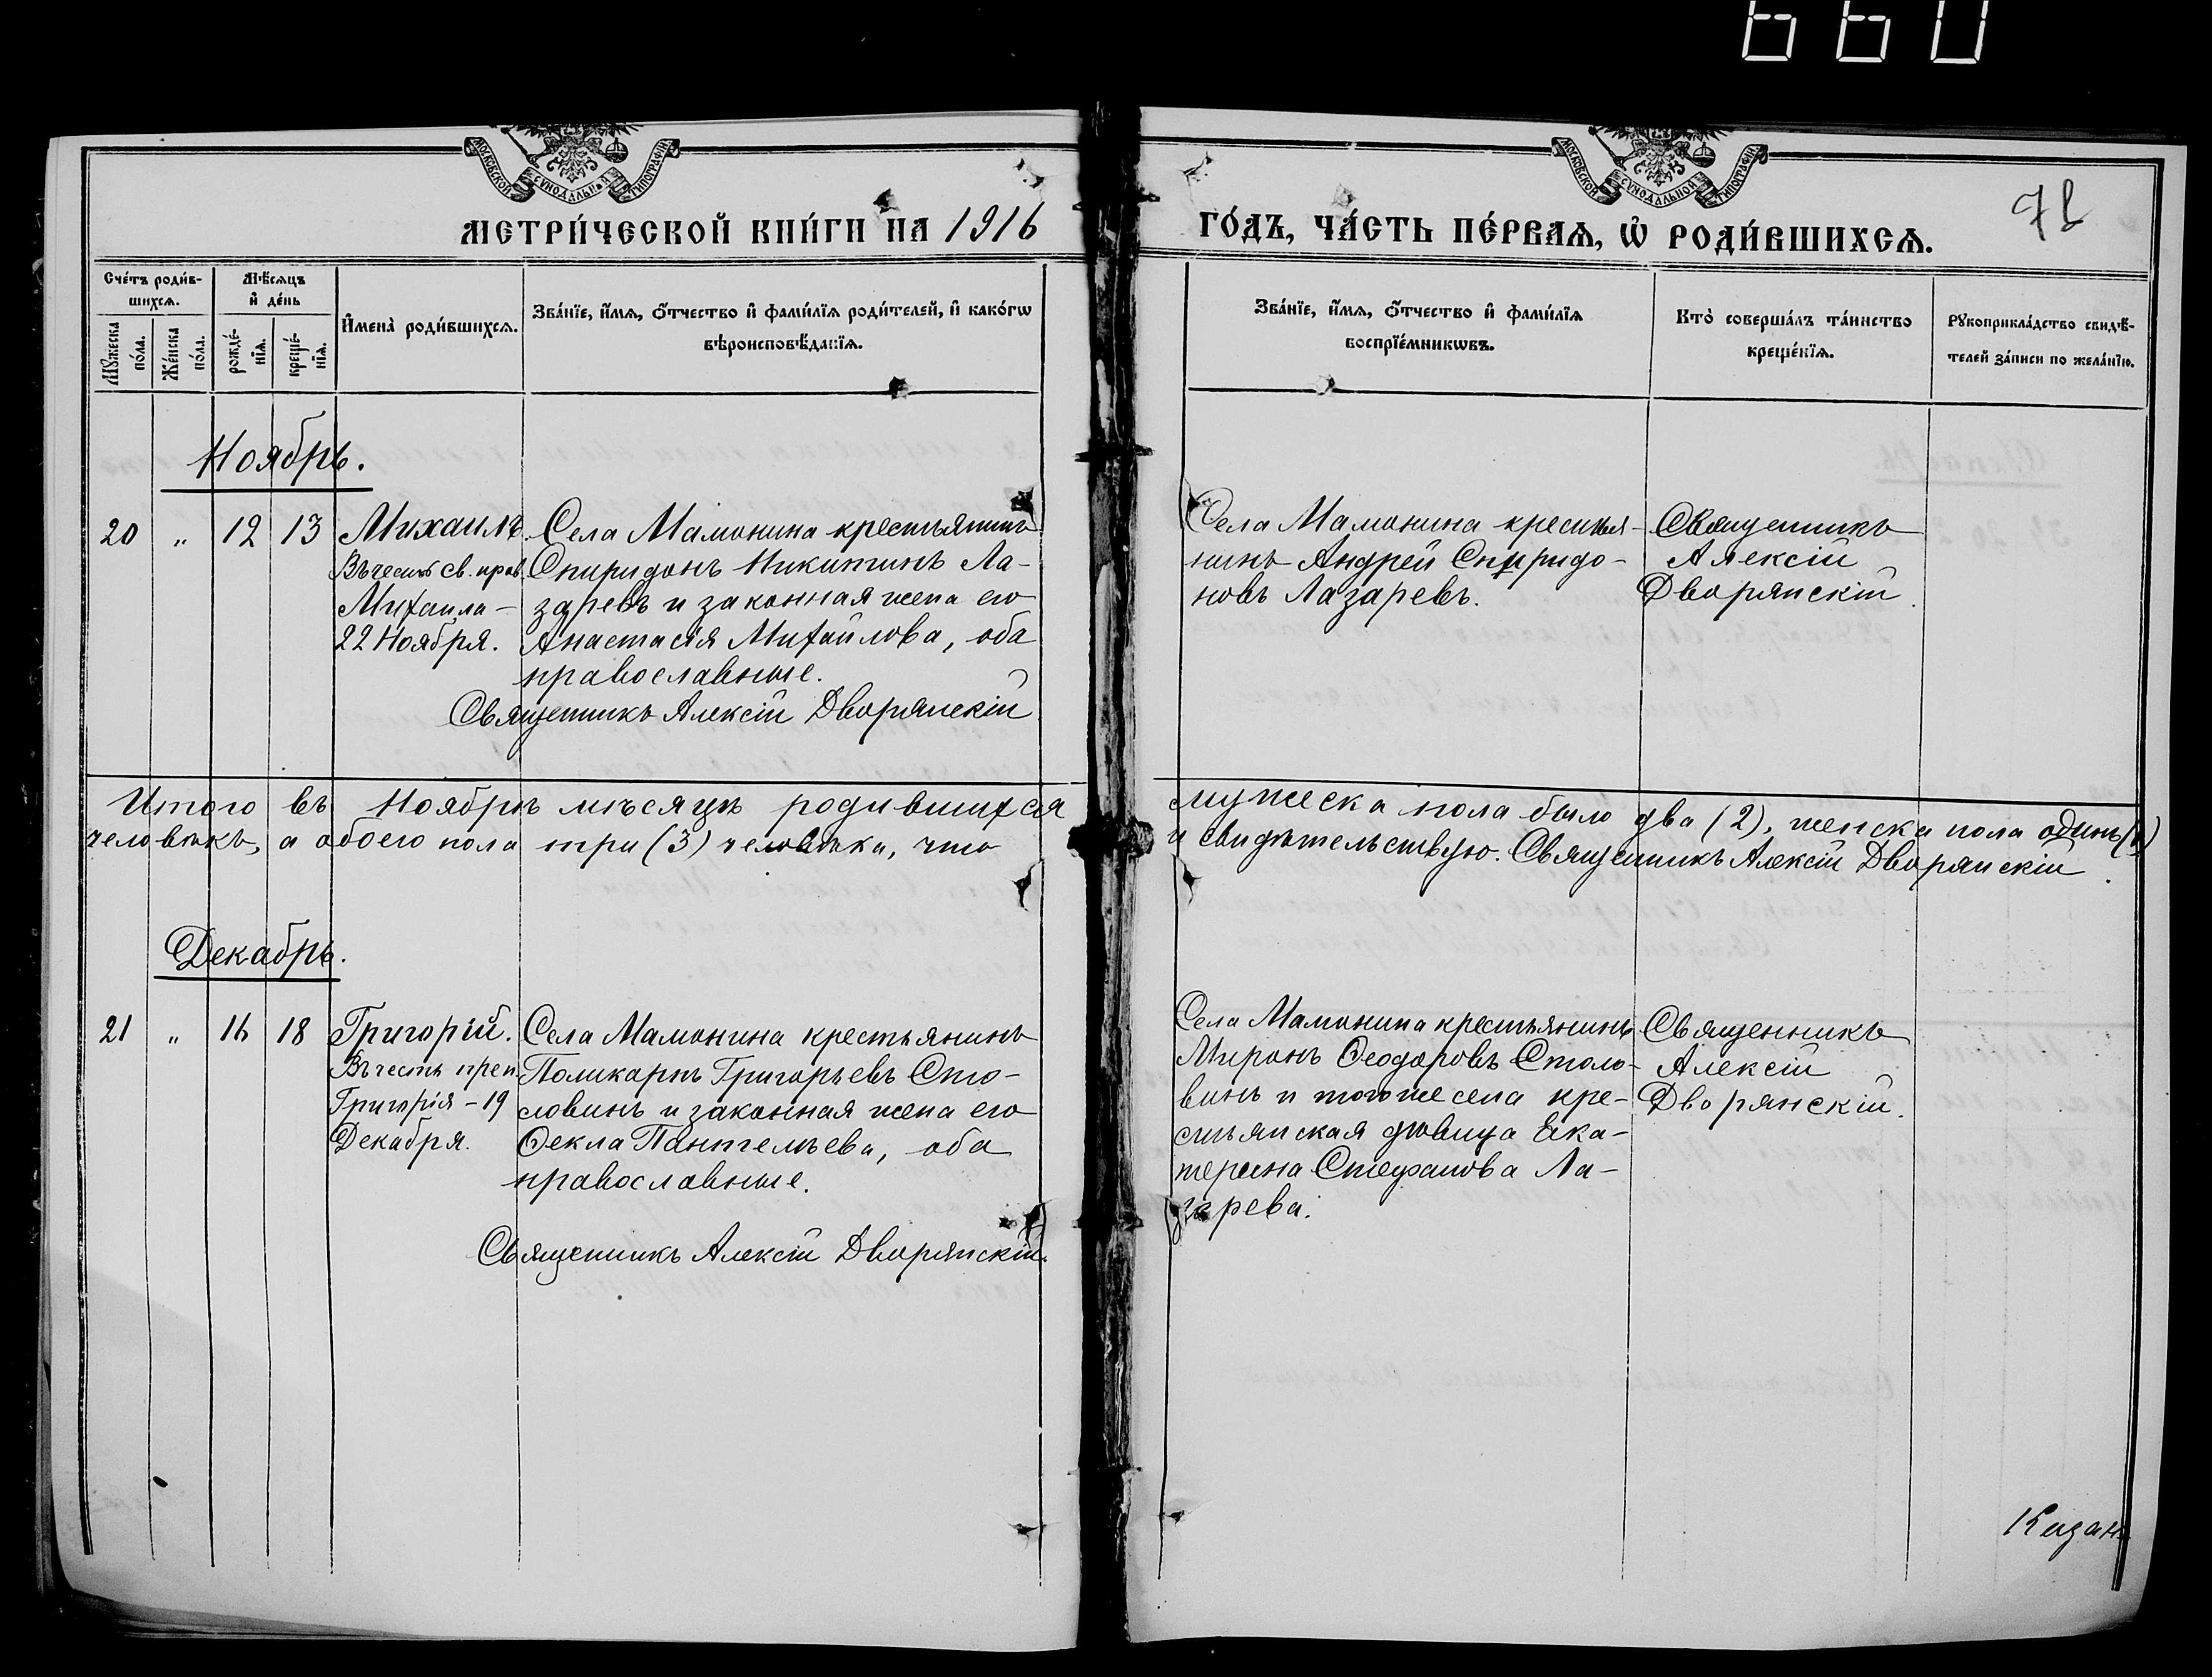 660
МОСКОВСКОЙ СУНОДАЛЬНОЙ ТИПОГРАФІИ
МОСКОВСКОЙ СУНОДАЛЬНОЙ ТИПОГРАФІИ
МЕТРИ́ЧЕСКОЙ КНИ́ГИ НА 1916
ГО́ДЪ, ЧА́СТЬ ПЕ́РВАѦ, Ѡ҆ РОДИ́ВШИХСѦ.
Сче́тъ роди́в-
шихсѧ.
Мꙋ́жеска
по́ла.
Же́нска
по́ла.
Мѣ́сѧцъ
и҆ де́нь
рожде́-
нїѧ.
креще́-
нїѧ.
И҆мена̀ роди́вшихсѧ.
Зва́нїе, и҆́мѧ, ѻ҆́тчество и҆ фами́лїѧ роди́телей, и҆ како́гѡ
вѣроисповѣ́данїѧ.
Зва́нїе, и҆́мѧ, ѻ҆́тчество и҆ фами́лїѧ
воспрїе́мникѡвъ.
Кто̀ соверша́лъ та́инство
креще́нїѧ.
Рꙋкоприкла́дство свидѣ́-
телей за́писи по жела́нїю.
Ноябрь.
20 „ 12 13 Михаилъ
Въ честь св. прав.
Михаила –
22 Ноября.
Села Мамонина крестьянинъ
Спиридонъ Никитинъ Ла-
заревъ и законная жена его
Анастасія Михайлова, оба
православные.
Священникъ Алексій Дворянскій
Села Мамонина крестья-
нинъ Андрей Спиридо-
новъ Лазаревъ.
Священникъ
Алексій
Дворянскій.
Итого въ Ноябрѣ мѣсяцѣ родившихся мужеска пола было два (2), женска пола одинъ (1)
человѣкъ, а обоего пола три (3) человѣка, что и свидѣтельствую. Священникъ Алексій Дворянскій.
Декабрь.
21 „ 16 18 Григорій.
Въ честь преп.
Григорія – 19
Декабря.
Села Мамонина крестьянинъ
Поликарпъ Григорьевъ Сто-
ловинъ и законная жена его
Ѳекла Пантелѣева, оба
православные.
Священникъ Алексій Дворянскій.
Села Мамонина крестьянинъ
Миронъ Ѳеодоровъ Столо-
винъ и того же села кре-
стьянская дѣвица Ека-
терина Стефанова Ла-
зарева.
Священникъ
Алексій
Дворянскій.